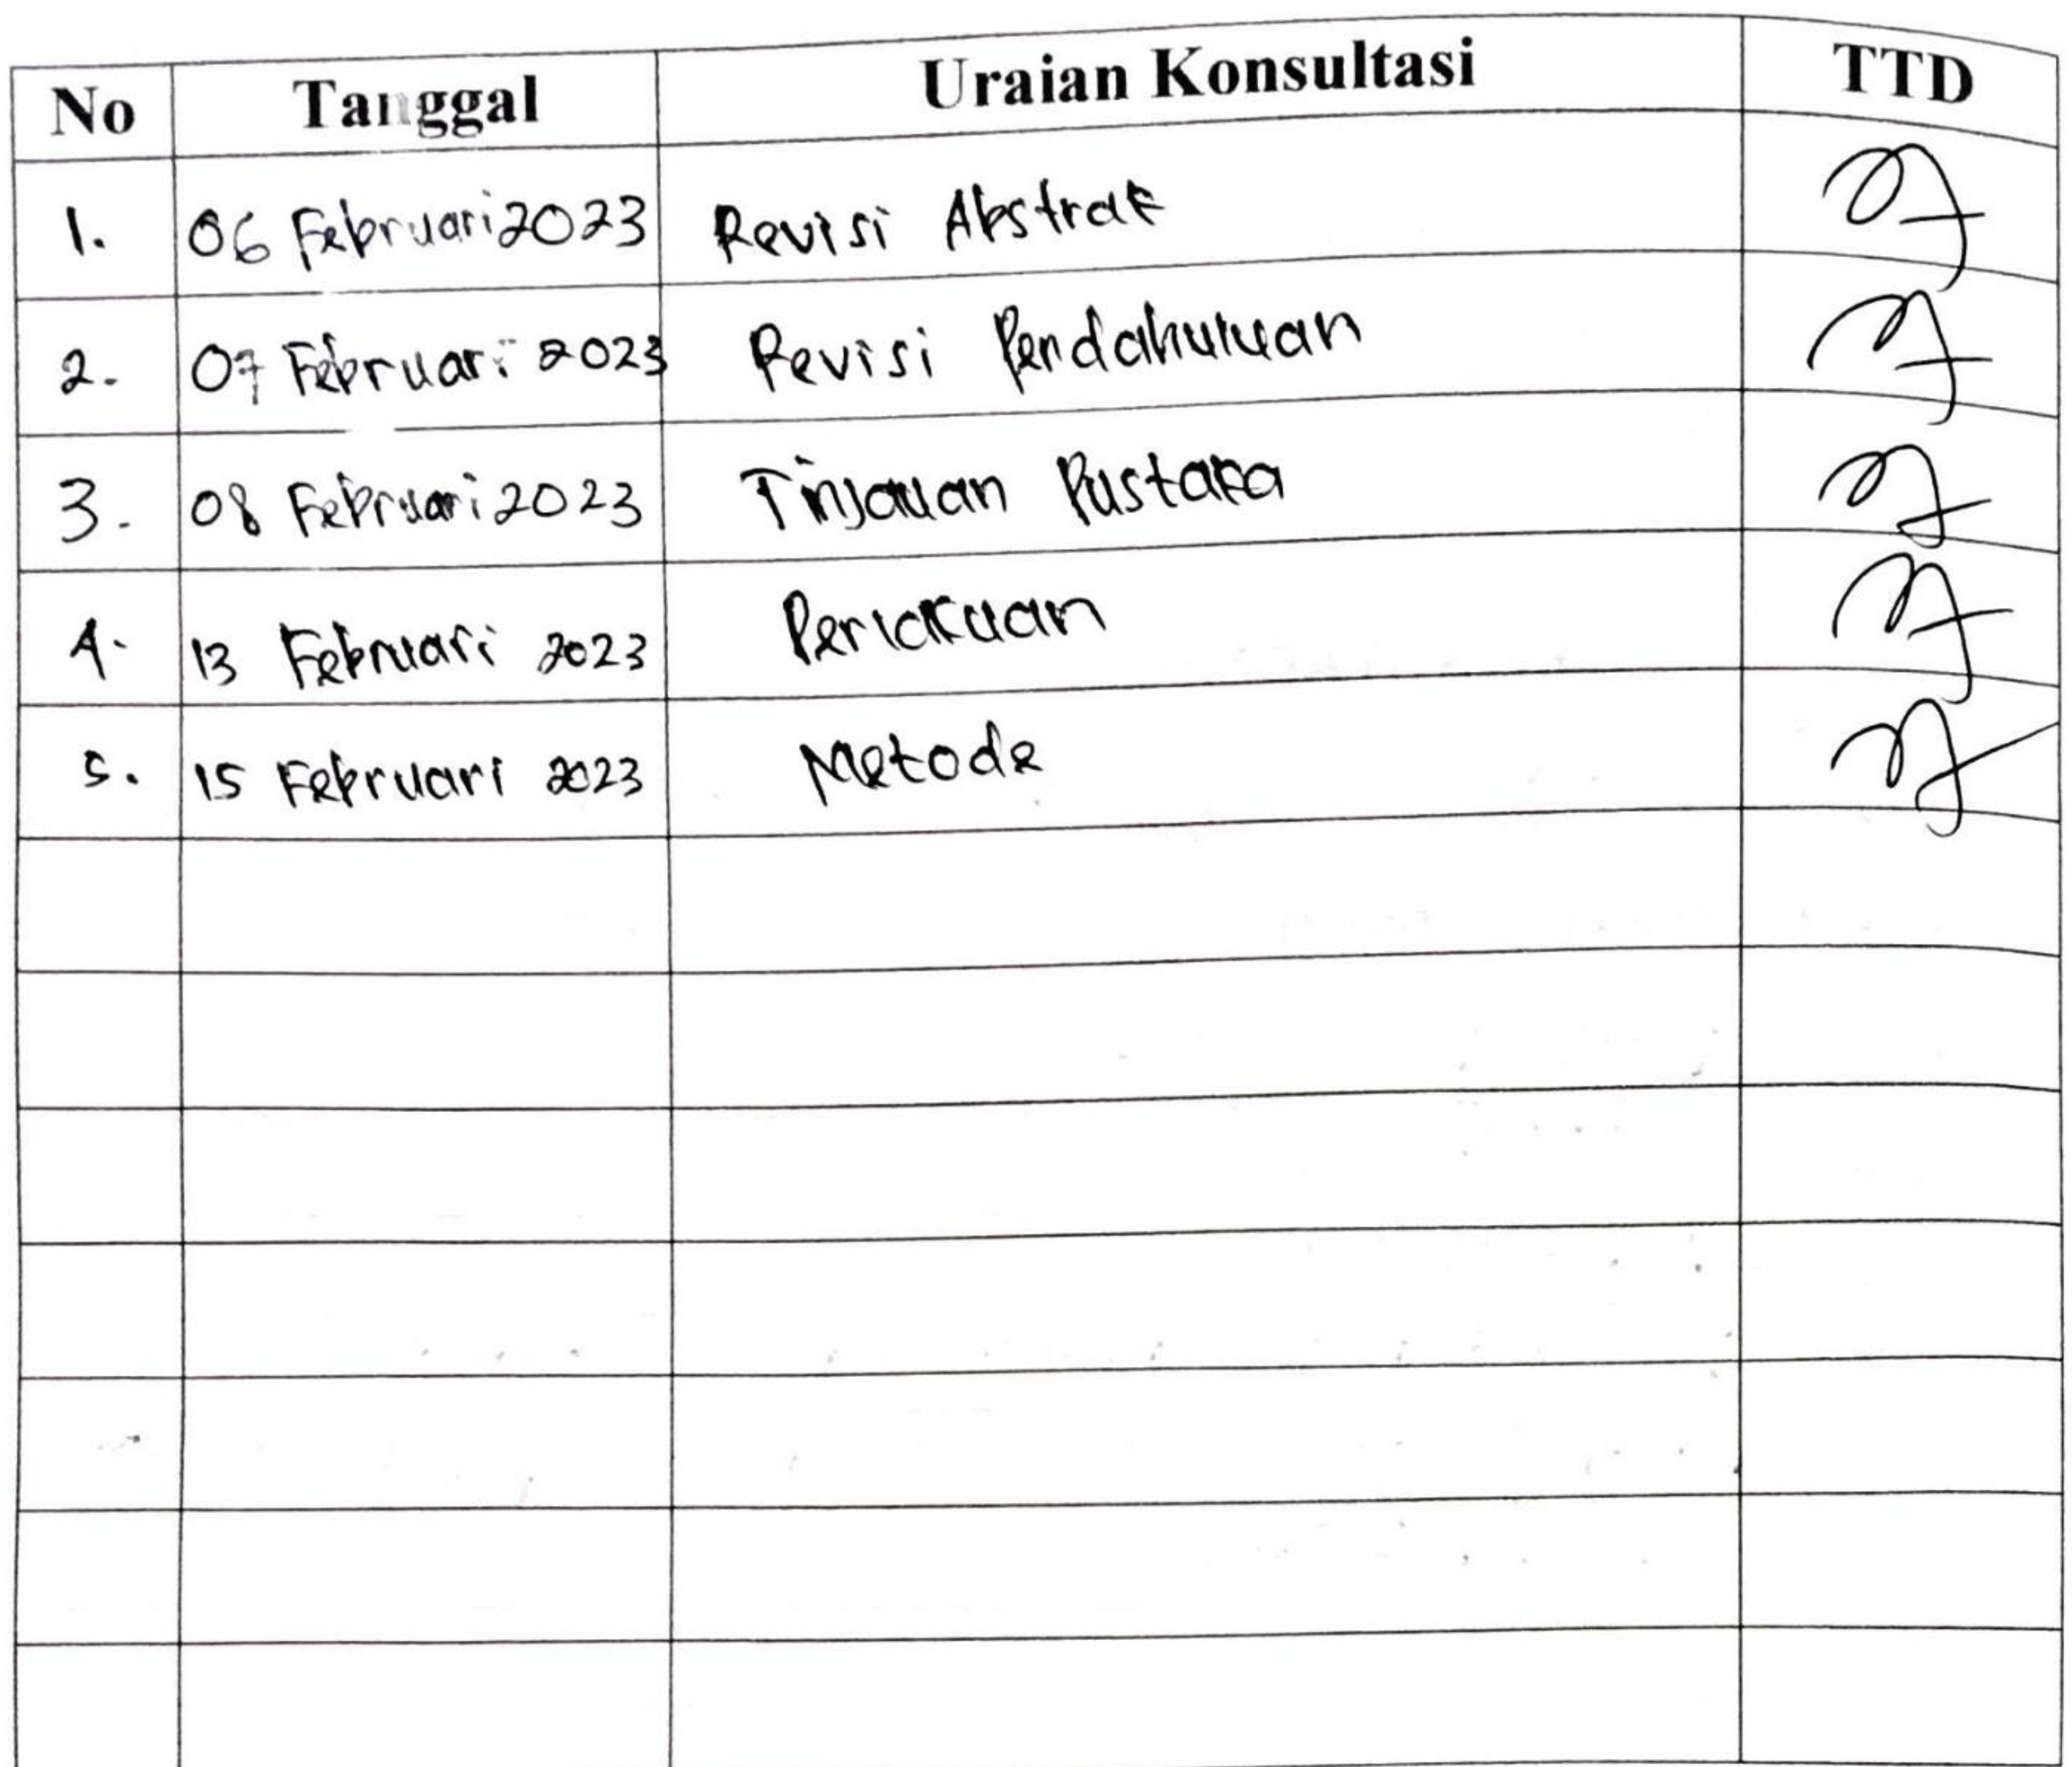 No Tanggal Uraian Konsultasi TTD
1. 06 Februari 2023 Revisi Abstrak
2. 07 Februari 2023 Revisi Pendahuluan
3. 08 Februari 2023 Tinjauan Pustaka
4. 13 Februari 2023 Perlakuan
5. 15 Februari 2023 Metode